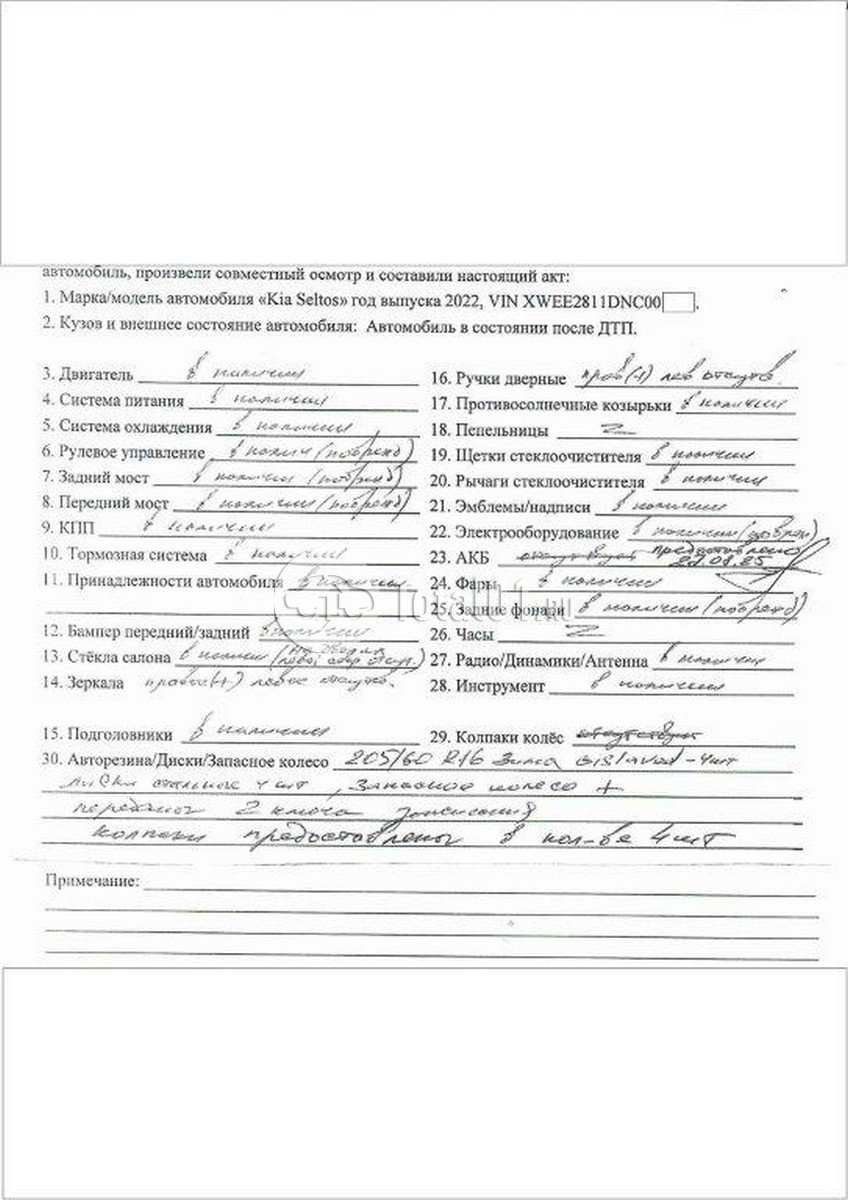 автомобиль, произвели совместный осмотр и составили настоящий акт:
1. Марка/модель автомобиля «Kia Seltos» год выпуска 2022, VIN XWEE2811DNC00
2. Кузов и внешнее состояние автомобиля: Автомобиль в состоянии после ДТП.
3. Двигатель в наличии
4. Система питания в наличии
5. Система охлаждения в наличии
6. Рулевое управление в налич (повренд)
7. Задний мост в наличии (повренд)
8. Передний мост в наличии (повренд)
9. КПП в наличии
10. Тормозная система в наличии
11. Принадлежности автомобиля в наличии
12. Бампер передний/задний в наличии
13. Стёкла салона в наличии
14. Зеркала правое(+) левое отсутв.
15. Подголовники в наличии
16. Ручки дверные прав(+) лев отсутв.
17. Противосолнечные козырьки в наличии
18. Пепельницы Z
19. Щетки стеклоочистителя в наличии
20. Рычаги стеклоочистителя в наличии
21. Эмблемы/надписи в наличии
22. Электрооборудование в наличии
23. АКБ отсутствует предоставлено
24. Фары в наличии
25. Задние фонари в наличии (повренд)
26. Часы Z
27. Радио/Динамики/Антенна в наличии
28. Инструмент в наличии
29. Колпаки колёс отсутствуют
30. Авторезина/Диски/Запасное колесо 205/60 R16 Зима Gislaved - 4шт
диски стальные 4 шт, Запасное колесо +
2 ключа зажигания
колпаки предоставлены в кол-ве 4 шт
Примечание:
Total01.ru